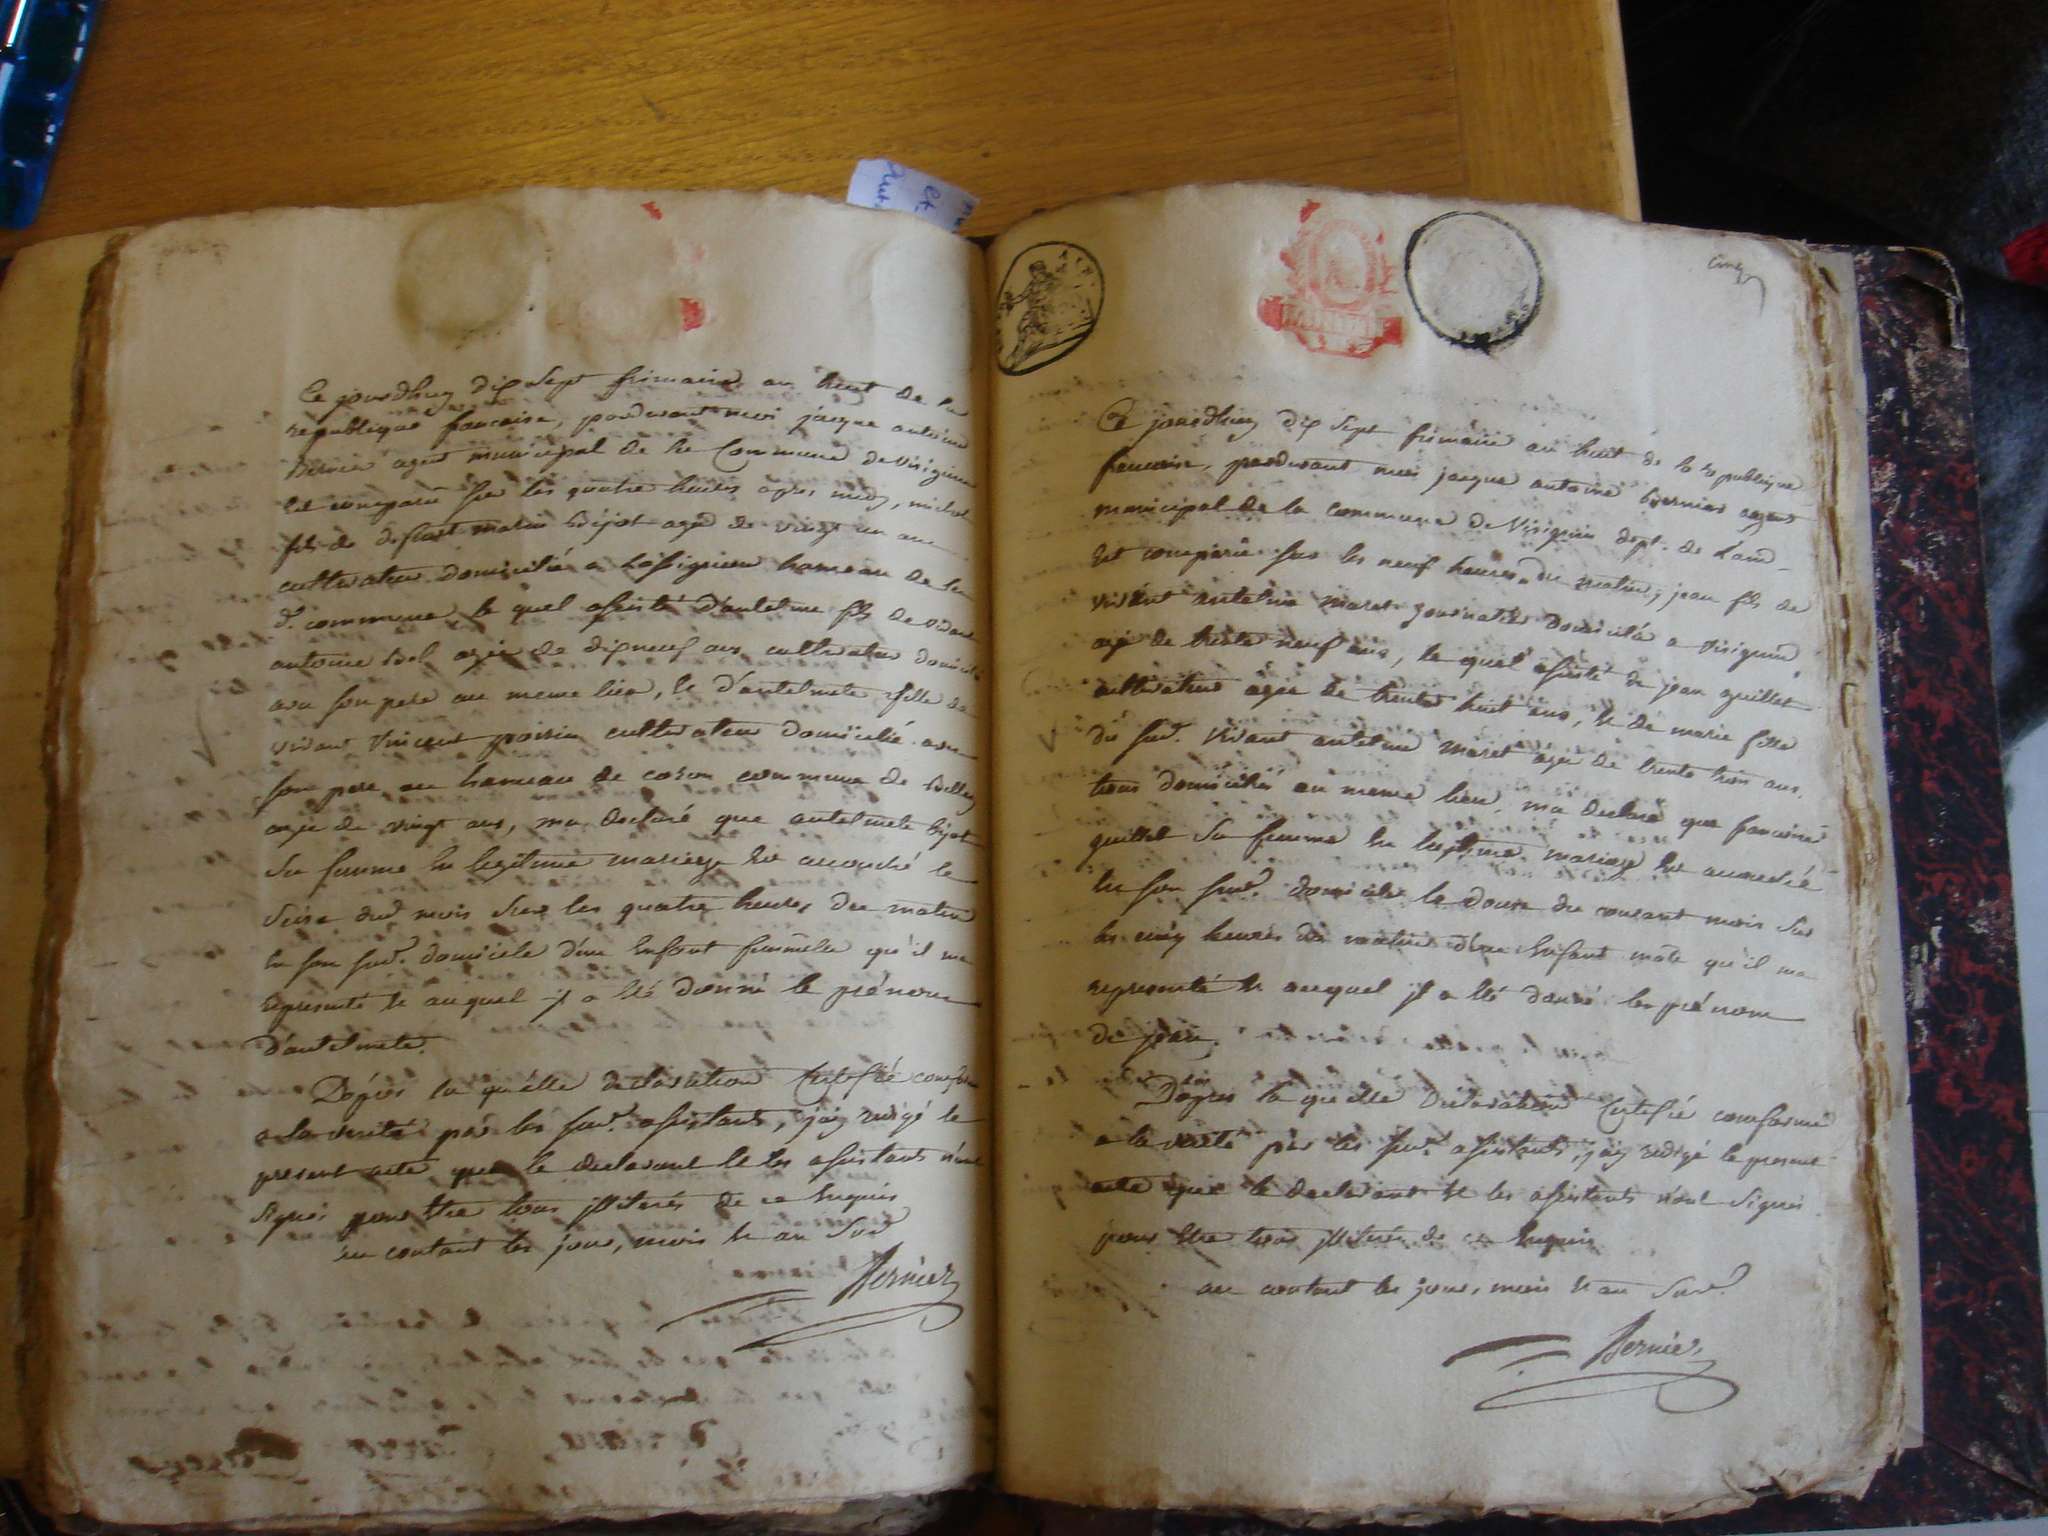 Ce jourdhuy dix Sept frimaire an huit de la
republique francaise, pardevant moi jacque antoine
Bernier agent municipal de la Commune de Virignin
Est comparu sur les quatre heures apres midy, michel
fils de deffunt martin Bijot agé de vingt un ans
cultivateur domicilié a hameau de la
d. commune, le quel assisté d'antelme fils de vivant
antoine Bel agée de dixneuf ans cultivateur domicilié
avec son pere au meme lieu, et d'antelmete fille de
vivant Vincent cultivateur domicilié avec
son pere au hameau de coron commune de Belley
agée de vingt ans, ma declaré que antelmete Bijot
Sa femme en legitime mariage Est accouché le
Seize dud. mois Sur les quatre heures du matin
En son Sud. domicile d'une Enfant femelle qu'il ma
representé et auquel il a Eté donné le prénom
D'antelmete.
Dapres la quelle declaration Certifié conforme
a la verité par les Sud. assistants, jay redigé le
present acte que le declarant Et les assistants n'ont
Signés pour Etre tous illiterés de ce Enquis
au contant les jour, mois et an Sud
Bernier
cinq
Ce jourdhuy dix Sept frimaire an huit de la republique
francaise, pardevant moi jacque antoine Bernier agent
municipal de la commune de Virignin dept. de L'ain
Est comparu sur les neuf heures du matin, jean fils de
vivant antelme maret journalier domicilié a virignin,
agé de trente neuf ans, le quel assisté de jean guillet
cultivateur agée de trente huit ans, et de marie fille
du Sud. vivant antelme maret agée de trente trois ans.
tous domiciliés au meme lieu. ma declaré que francoise
guillet Sa femme En legitime mariage Est accouchée
En son Sud. domicile le douze du courant mois Sur
les cinq heures du matin d'une Enfant male qu'il ma
representé et auquel il a Eté donné les prénom
de jean.
Dapres la quelle Declaration Certifié conforme
a la verité par les Sud. assistants, jay redigé le present
acte que le declarant et les assistants n'ont Signés
pour Etre tous illiterés de ce Enquis
au contant les jour, mois et an Sud.
Bernier